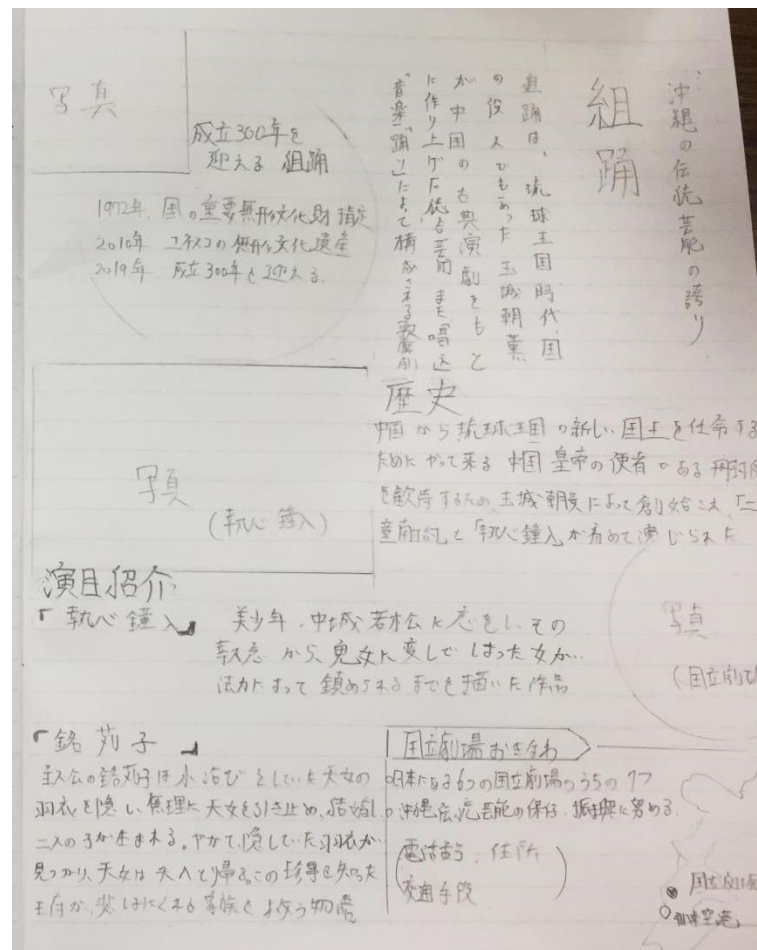 沖縄の伝統芸能の誇り
組踊
組踊は、琉球王国時代、国
の役人でもあった玉城朝薫
が中国の古典演劇をもと
に作り上げた総合芸術 また「唱え」
「音楽」「踊り」によって構成される歌舞劇
写真
成立300年を
迎える 組踊
1972年. 国の重要無形文化財指定
2010年 ユネスコの無形文化遺産
2019年 成立300年を迎える.
歴史
中国から琉球王国の新しい国王を任命する
ためにやって来る 中国皇帝の使者である
を歓待するため、玉城朝薫によって創始され、「二
童敵討」と「執心鐘入」が初めて演じられた
写真
(執心鐘入)
演目紹介
「執心鐘入」 美少年・中城若松に恋をし、その
執念から、鬼女に変してしまった女が…
法力によって鎮められるまでを描いた作品
写真
(国立劇
「銘苅子」
主人公の銘苅子は水浴びをしていた天女の
羽衣を隠し、無理に天女を引き止め、結婚し
二人の子が生まれる。やがて、隠していた羽衣が
見つかり、天女は天へと帰る。この珍事を知った
王府が、悲しみにくれる家族を 物語
国立劇場おきなわ
日本にある6つの国立劇場のうちの1つ
沖縄伝統芸能の保存、振興に努める.
電話番号、住所
交通手段
国立劇場
那覇空港